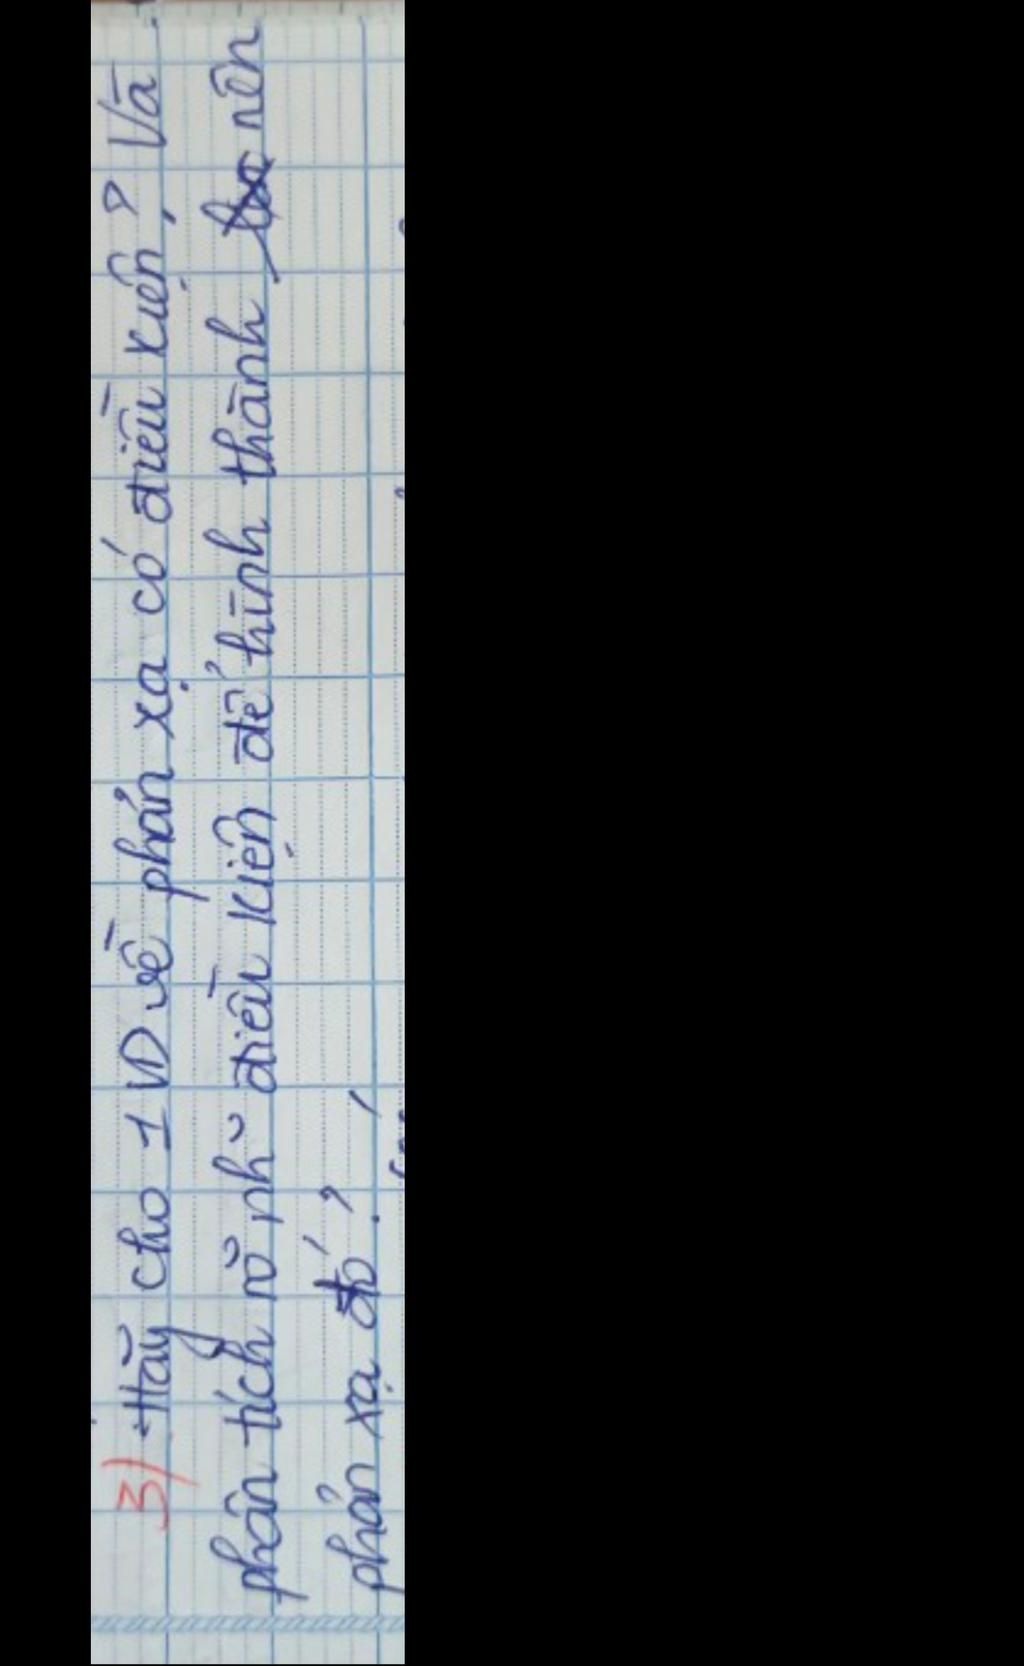 3) Hãy cho 1 VD về phản xạ có điều kiện? Và
phân tích rõ nh~ điều kiện để hình thành nên
phản xạ đó?